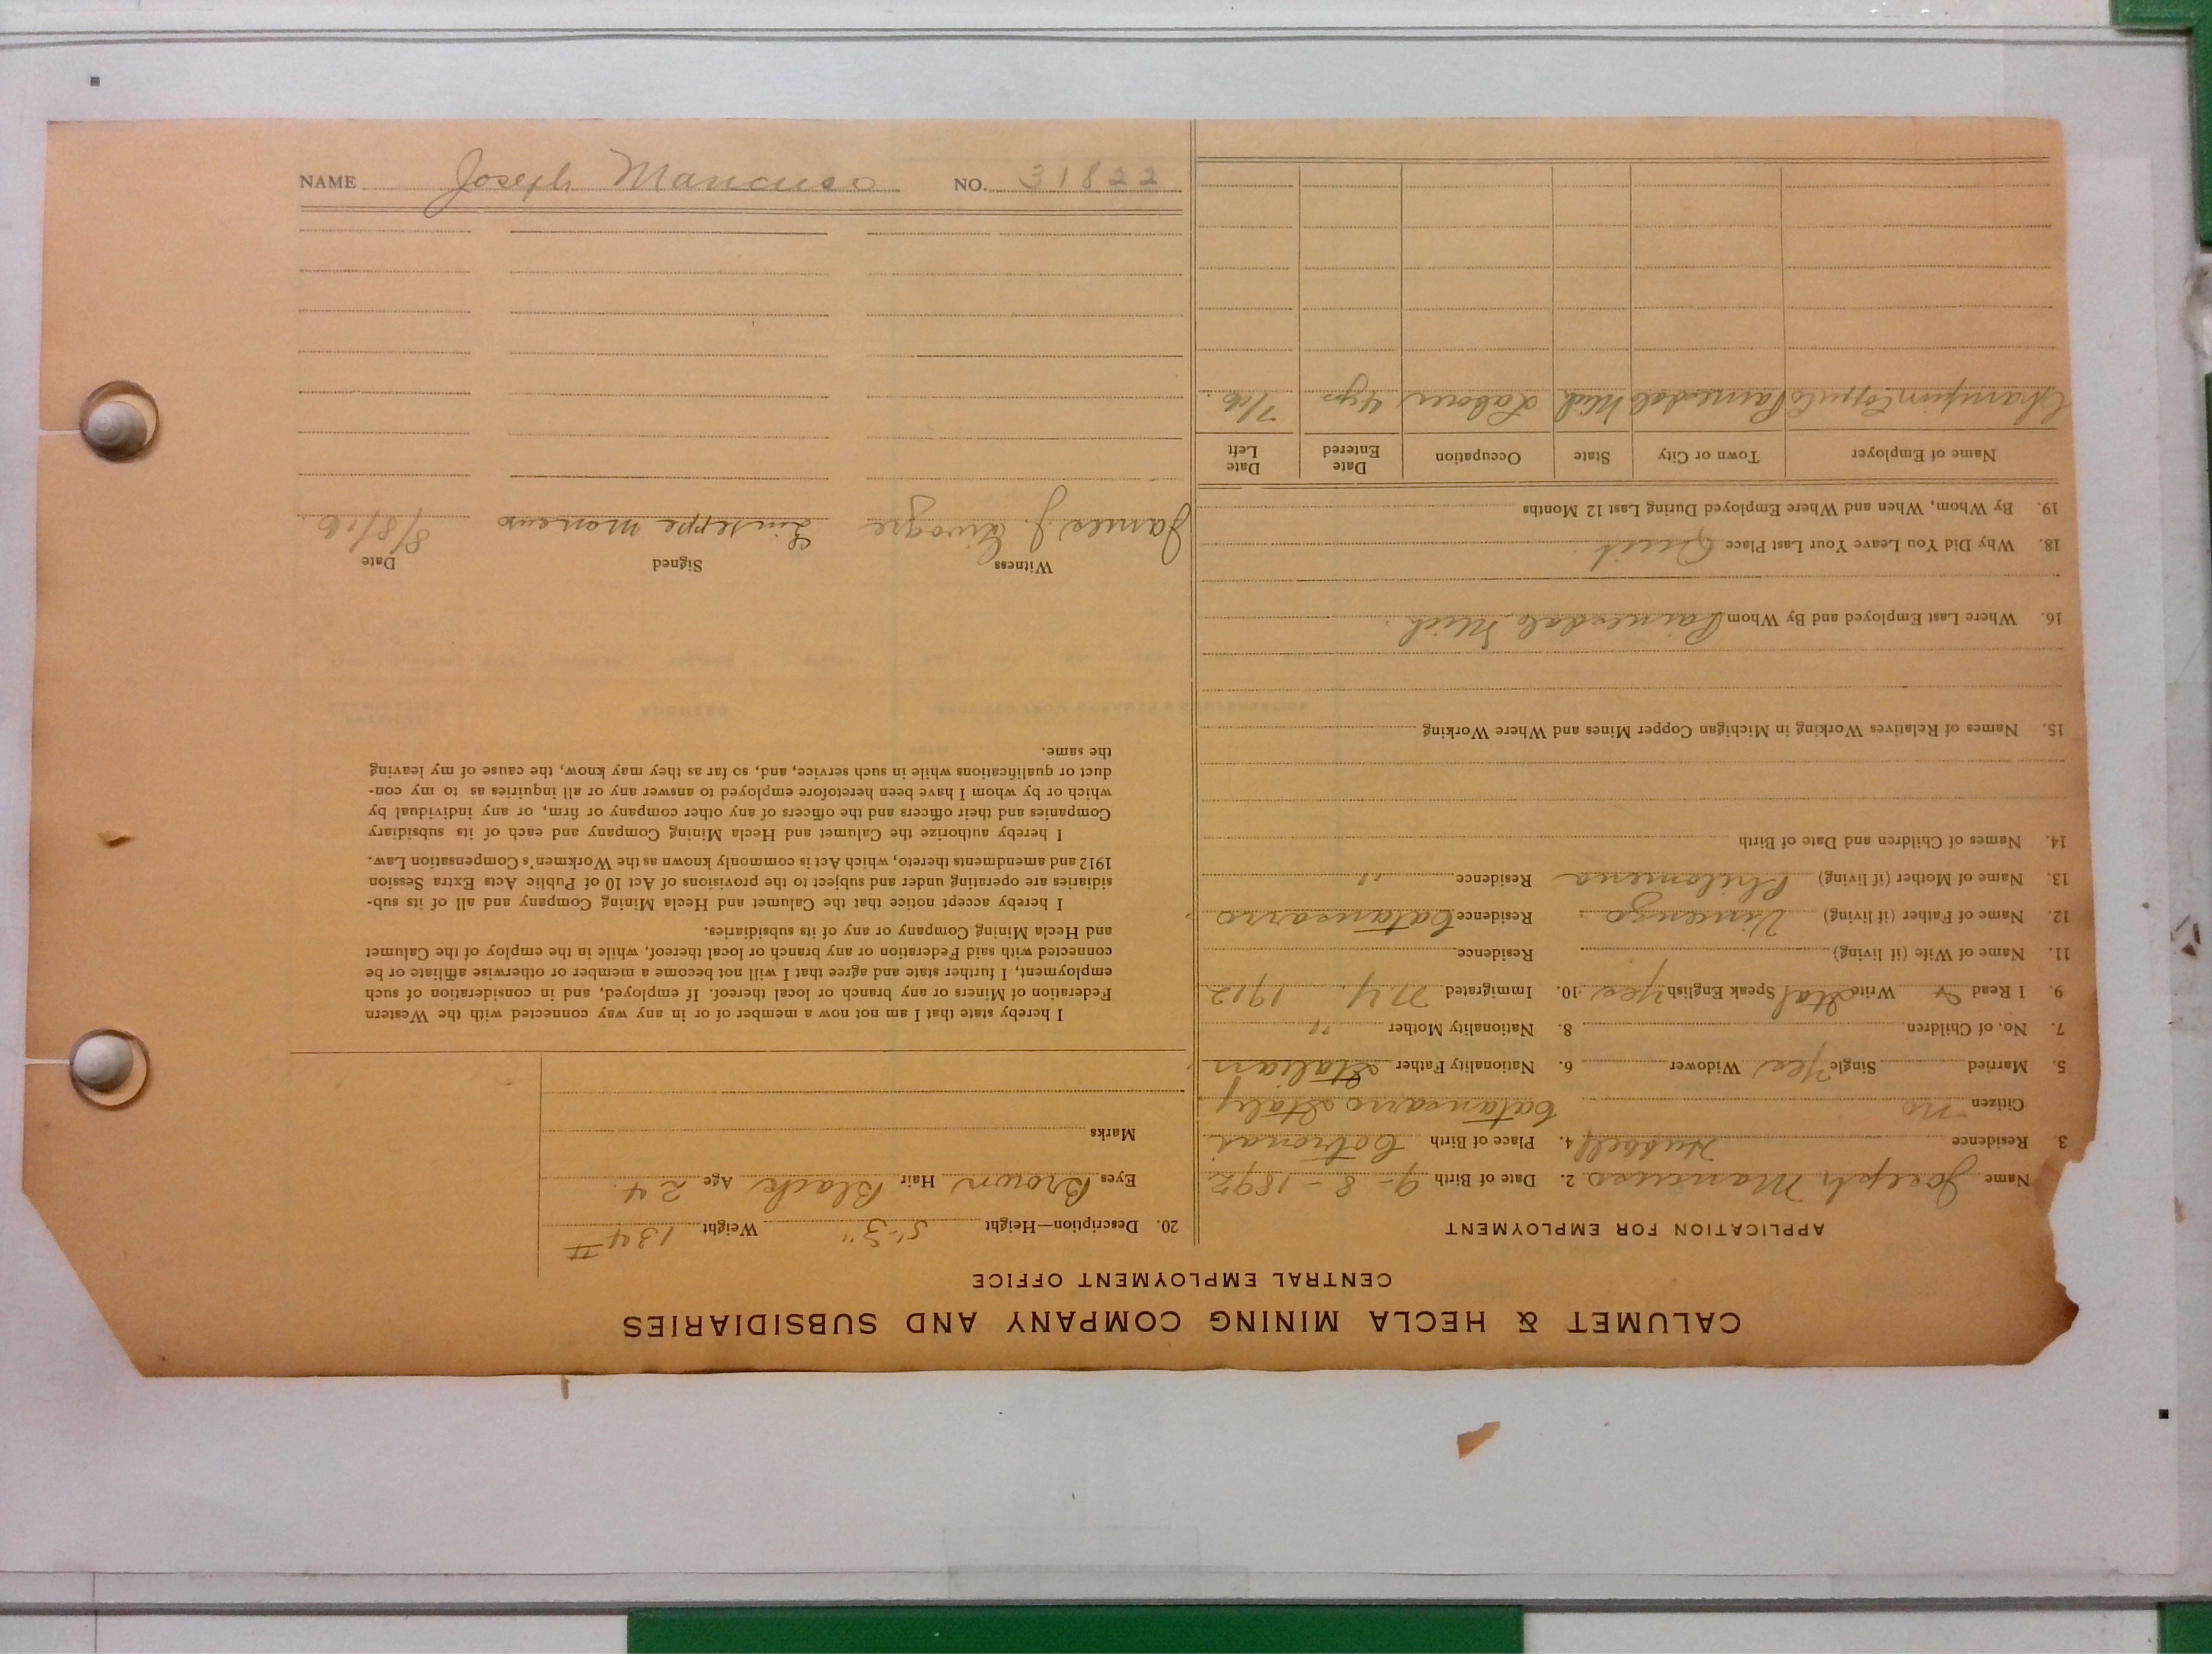 CALUMET & HECLA MINING COMPANY AND SUBSIDIARIES
CENTRAL EMPLOYMENT OFFICE
APPLICATION FOR EMPLOYMENT
Name Joseph Mancuso 2. Date of Birth 9-8-1892
3. Residence Hubbell 4. Place of Birth Cotronai
Citizen no Catanzarro Italy
5. Married Single Yes Widower 6. Nationality Father Italian
7. No. of Children 8. Nationality Mother "
9. I Read & Write Ital Speak English Yes 10. Immigrated N.Y. 1912
11. Name of Wife (if living) Residence
12. Name of Father (if living) Vincenzo Residence Catanzarro
13. Name of Mother (if living) Philomena Residence "
14. Names of Children and Date of Birth
15. Names of Relatives Working in Michigan Copper Mines and Where Working
16. Where Last Employed and By Whom Painesdale Mich.
18. Why Did You Leave Your Last Place Quit
19. By Whom, When and Where Employed During Last 12 Months
Name of Employer Town or City State Occupation Date Entered Date Left
Champion Copper Co Painesdale Mich Laborer 4 yrs 7/16.
20. Description—Height 5'-3" Weight 134 #
Eyes Brown Hair Black Age 24
Marks
I hereby state that I am not now a member of or in any way connected with the Western
Federation of Miners or any branch or local thereof. If employed, and in consideration of such
employment, I further state and agree that I will not become a member or otherwise affiliate or be
connected with said Federation or any branch or local thereof, while in the employ of the Calumet
and Hecla Mining Company or any of its subsidiaries.
I hereby accept notice that the Calumet and Hecla Mining Company and all of its sub-
sidiaries are operating under and subject to the provisions of Act 10 of Public Acts Extra Session
1912 and amendments thereto, which Act is commonly known as the Workmen's Compensation Law.
I hereby authorize the Calumet and Hecla Mining Company and each of its subsidiary
Companies and their officers and the officers of any other company or firm, or any individual by
which or by whom I have been heretofore employed to answer any or all inquiries as to my con-
duct or qualifications while in such service, and, so far as they may know, the cause of my leaving
the same.
Witness Signed Date
James J. Giuseppe Mancuso 8/8/16.
NAME Joseph Mancuso NO. 31822